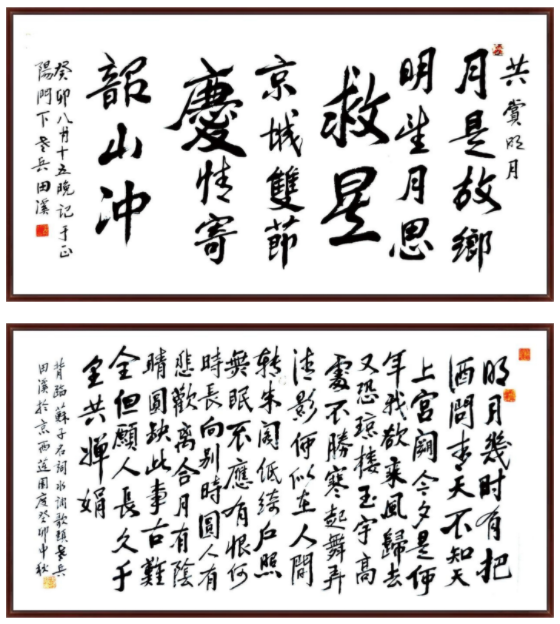 共賞明月
月是故鄉
明望月思
救星
京城雙節
慶情寄
韶山冲
癸卯八月十五晚记于正
陽门下老兵田溪
明月幾时有把
酒問青天不知天
上宫阙今夕是何
年我欲乘風歸去
又恐琼楼玉宇高
處不勝寒起舞弄
清影何似在人間
转朱阁低绮户照
無眠不應有恨何
時長向别時圓人有
悲歡离合月有陰
晴圆缺此事古難
全但願人長久千
里共婵娟
背临蘇子名詞水调歌頭老兵
田溪於京西莲园度癸卯中秋